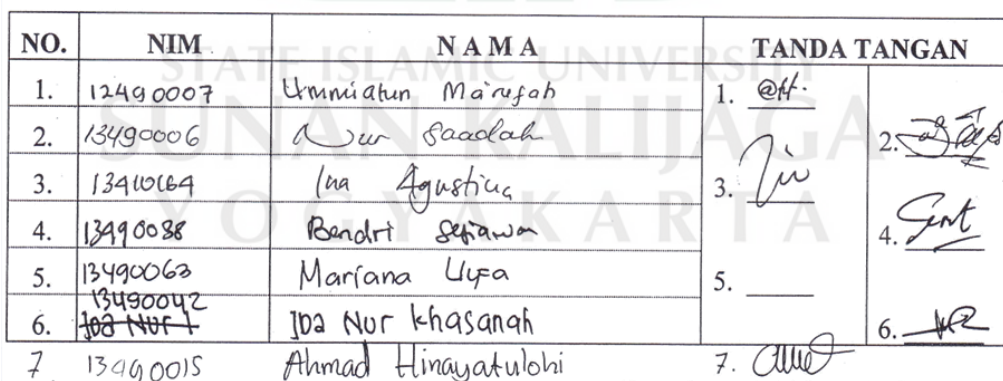 STATE ISLAMIC UNIVERSITY
SUNAN KALIJAGA
YOGYAKARTA
NO. NIM NAMA TANDA TANGAN
1. 12490007 Ummiatun Ma'rufah 1.
2. 13490006 Nur Saadah 2.
3. 13410164 Ina Agustina 3.
4. 13490038 Bendri Setiawan 4.
5. 13490063 Mariana Ulfa 5.
13490042
6. Ida Nur Khasanah 6.
7 13490015 Ahmad Hinayatulohi 7.